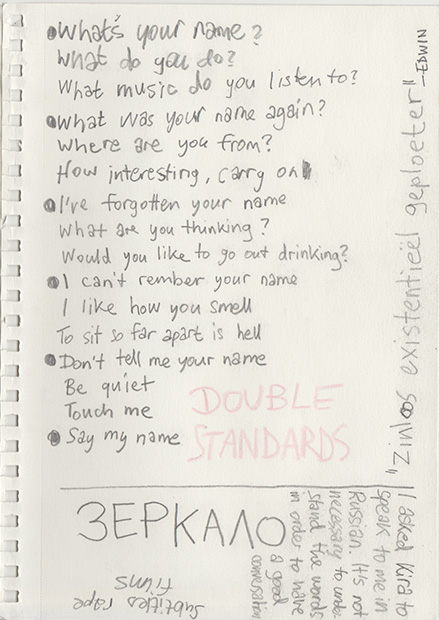 What's your name?
What do you do?
What music do you listen to?
What was your name again?
Where are you from?
How interesting, carry on
I've forgotten your name
What are you thinking?
Would you like to go out drinking?
I can't rember your name
I like how you smell
To sit so far apart is hell
Don't tell me your name
Be quiet
Touch me
Say my name
DOUBLE
STANDARDS
„Zinloos existentieël geploeter"
—EDWIN
ЗЕРКАЛО
I asked Kira to
speak to me in
Russian. It's not
necessary to under
stand the words
in order to have
a good
conversation
Subtitles rape
films